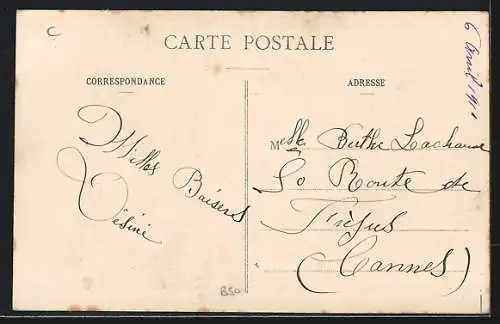 C
CARTE POSTALE
6 avril 1911
CORRESPONDANCE
ADRESSE
Milles
Baisers
Melle Berthe Lachaume
50 Route de
Fréjus
(Cannes)
B50